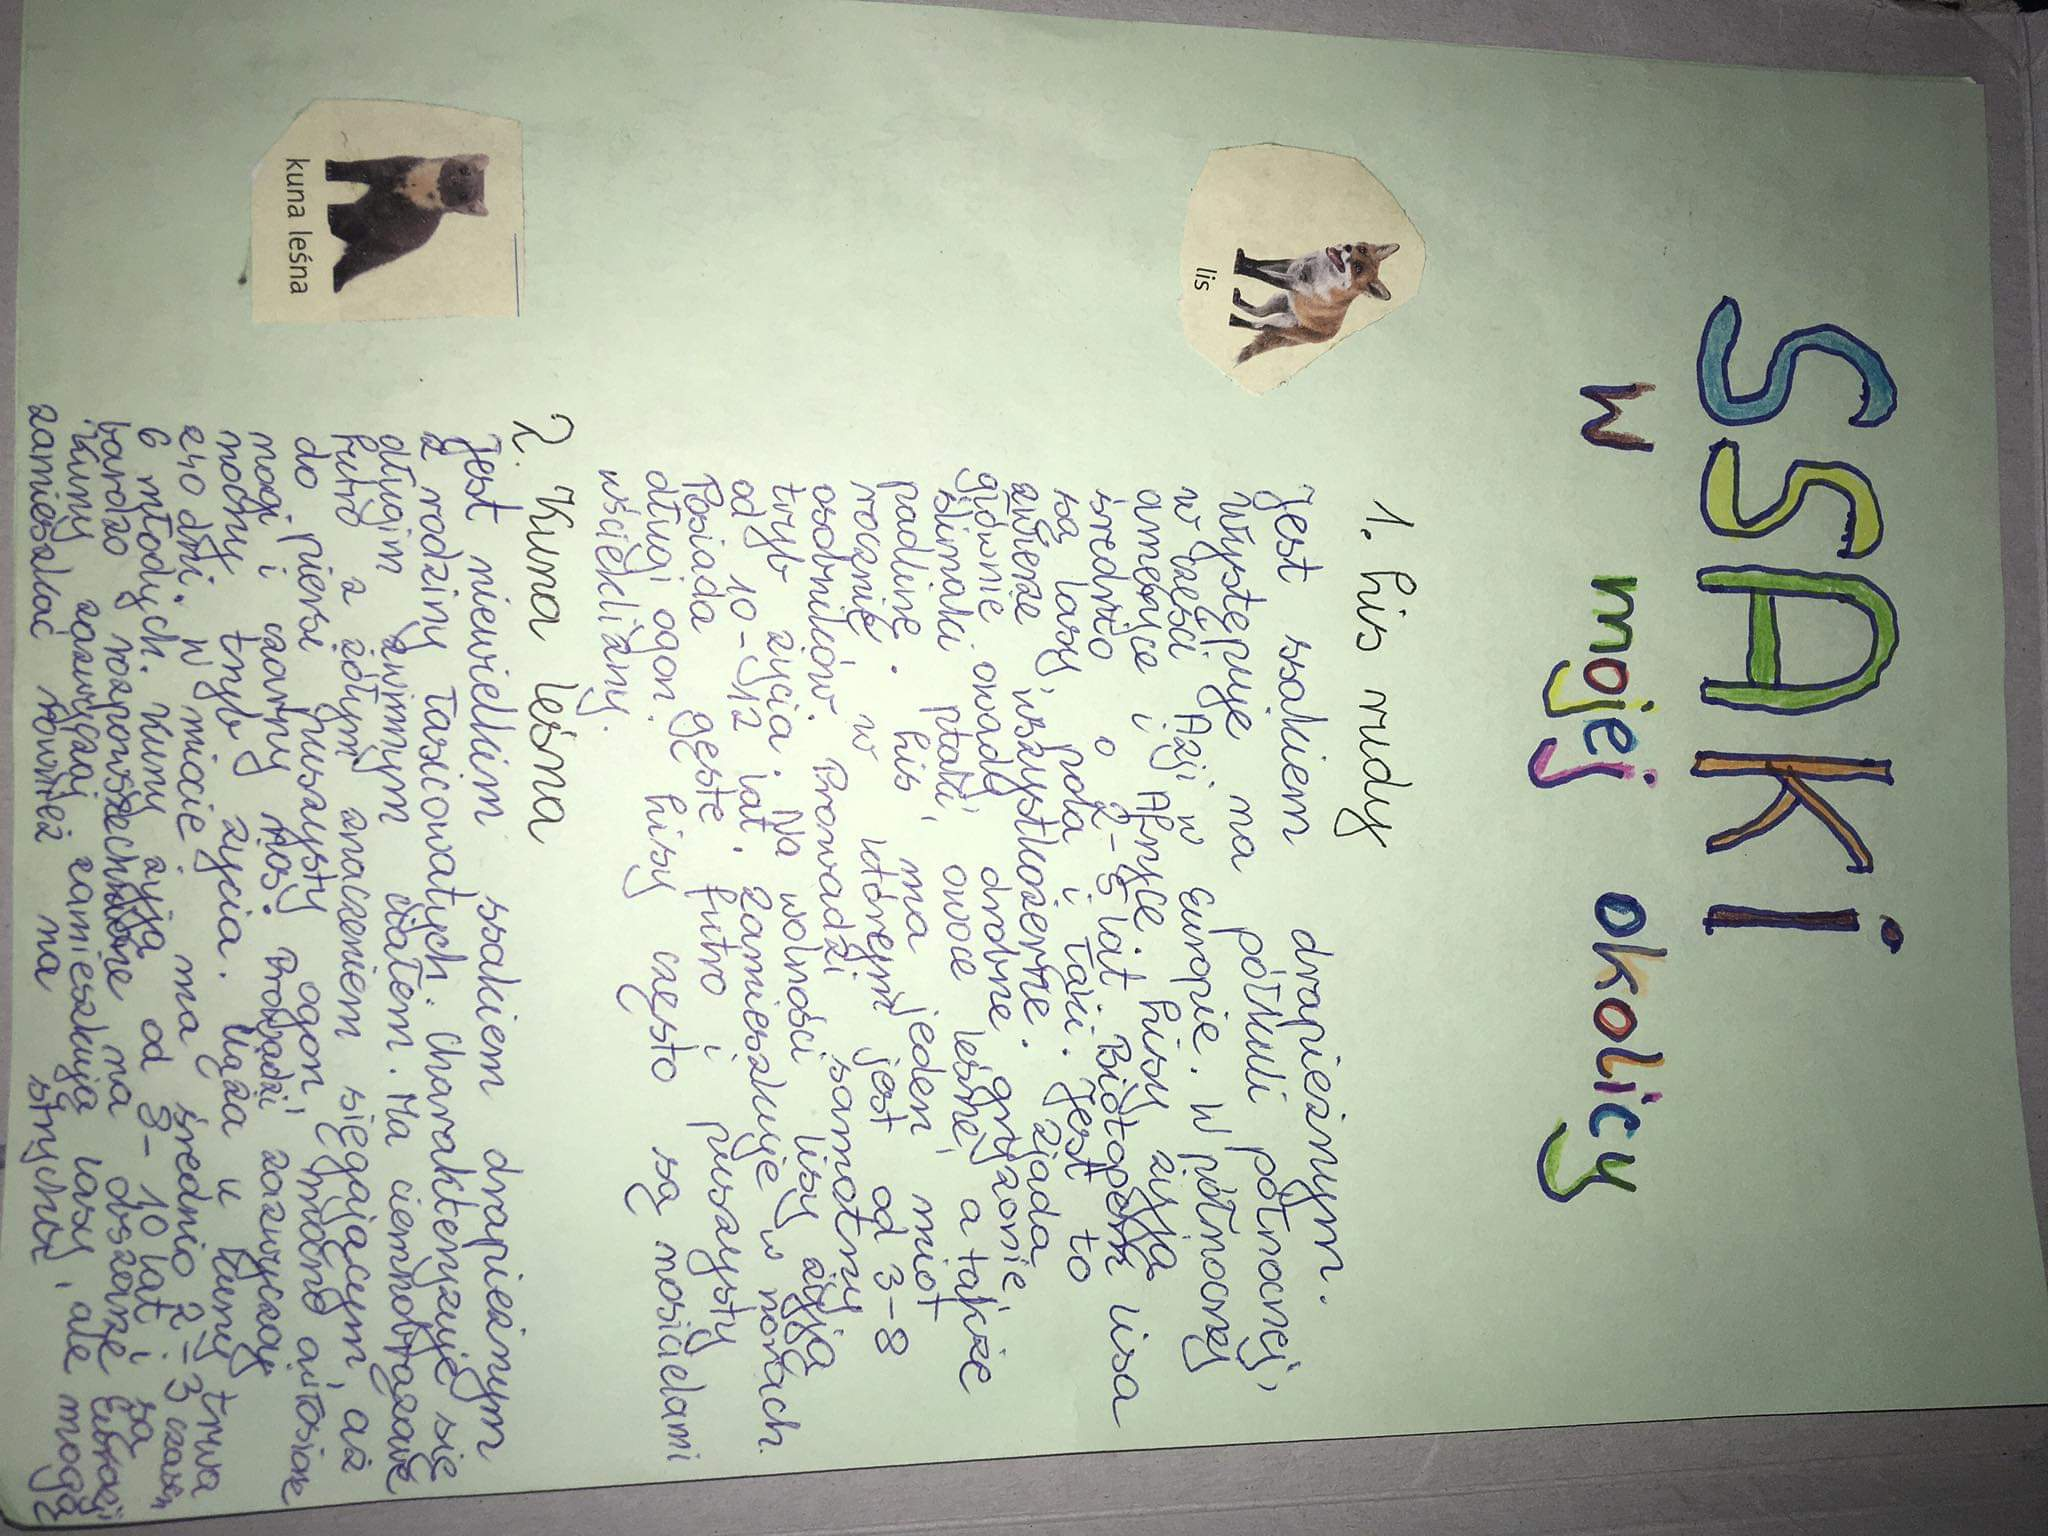 SSAKI
w mojej okolicy
lis
1. Lis rudy
Jest ssakiem drapieżnym.
Występuje na półkuli północnej,
w części Azji w Europie. W północnej
ameryce i Afryce. Lisy żyją
średnio o 2-5 lat. Biotopem lisa
są lasy, pola i łąki. Jest to
zwierze wszystkożerne. zjada
głównie owady, drobne gryzonie
ślimaki ptaki, owoce leśne, a także
padline. Lis ma jeden miot
rocznie w którym jest od 3-8
osobników. Prowadzi samotny
tryb życia. Na wolności lisy żyją
od 10-12 lat. Zamieszkuje w norach.
Posiada gęste futro i puszysty
długi ogon. Lisy często są nosicielami
wścieklizny.
kuna leśna
2. Kuna leśna
Jest niewielkim ssakiem drapieżnym
z rodziny łasicowatych. Charakteryzuje się
długim zwinnym ciałem. Ma ciemnobrązowe
futro z żółtym znaczeniem sięgającym, aż
do piersi puszysty ogon, mocno owłosione
nogi i czarny nos. Prowadzi zazwyczaj
nocny tryb życia. Ciąża u kuny trwa
240 dni. W miocie ma średnio 2-3 czasem
6 młodych. Kuny żyją od 8-10 lat i są
bardzo rozpowszechnione na obszarze
Kuny zazwyczaj zamieszkują lasy, ale mogą
zamieszkać również na strychu.